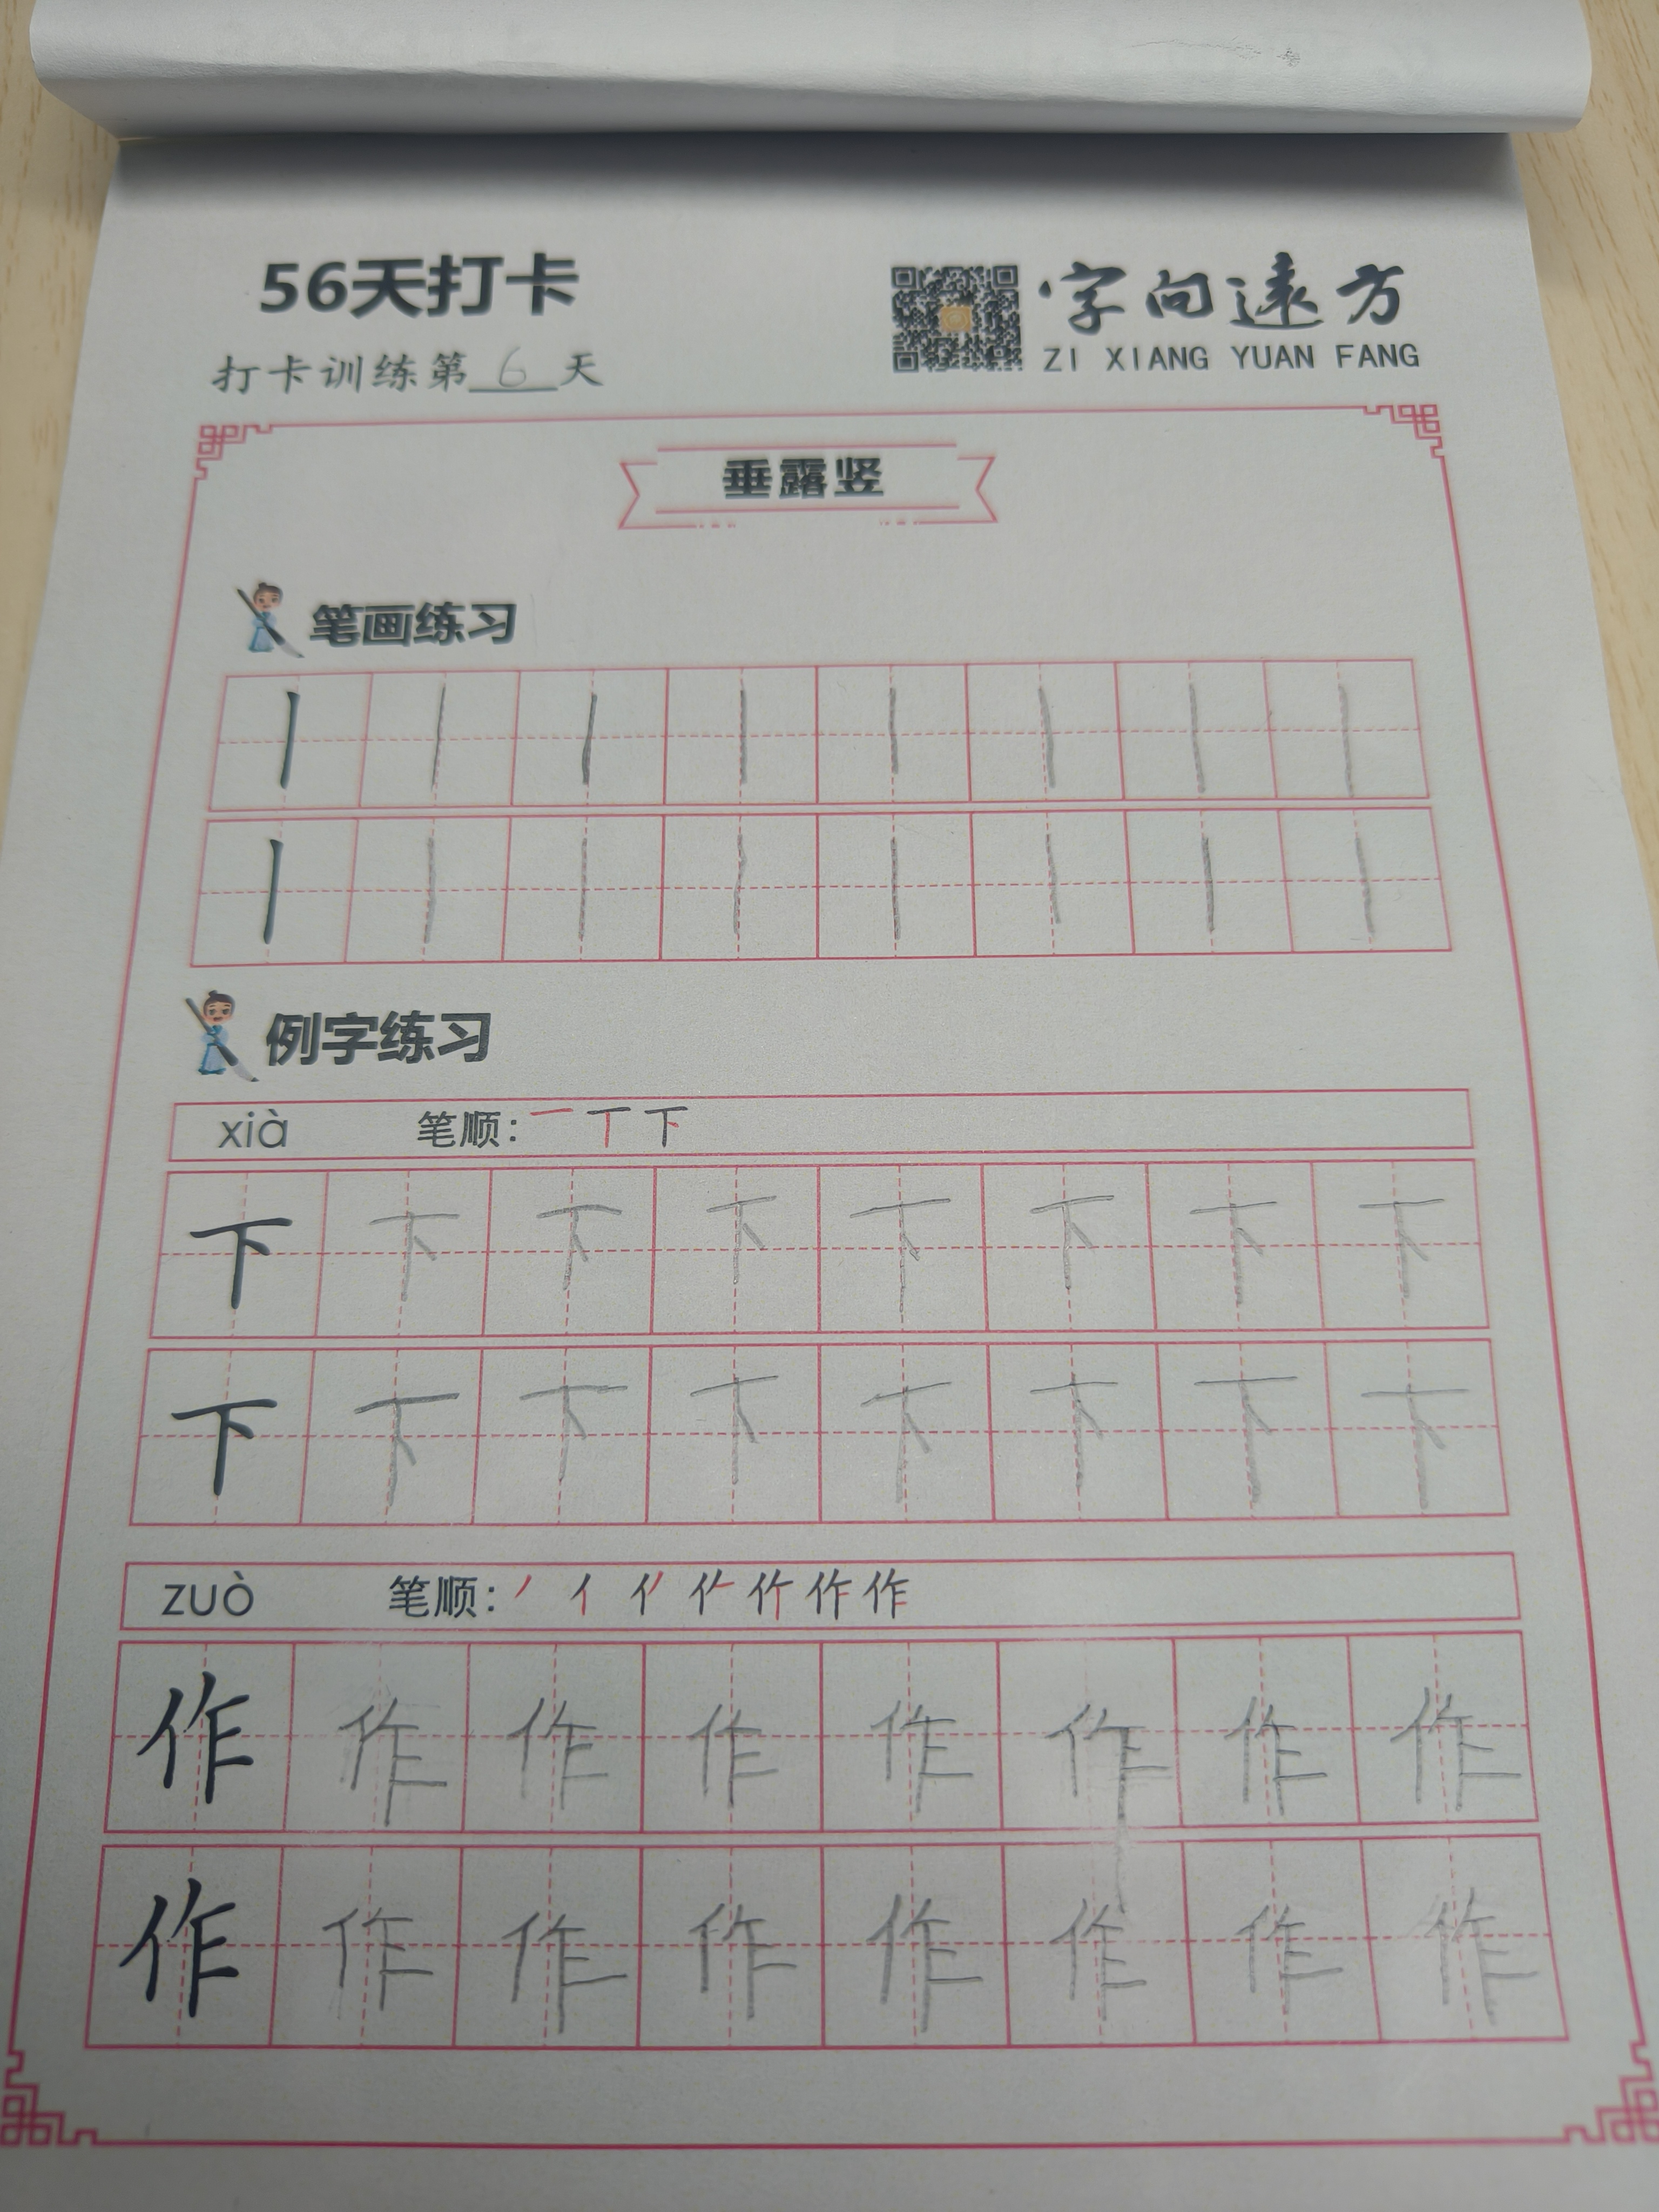 56天打卡
字向远方
ZI XIANG YUAN FANG
打卡训练第6天
垂露竖
笔画练习
丨丨丨丨丨丨丨丨
丨丨丨丨丨丨丨丨
例字练习
xià 笔顺: 一 丅 下
下下下下下下下下
下下下下下下下下
zuò 笔顺: 丿 亻 作
作作作作作作作作
作作作作作作作作